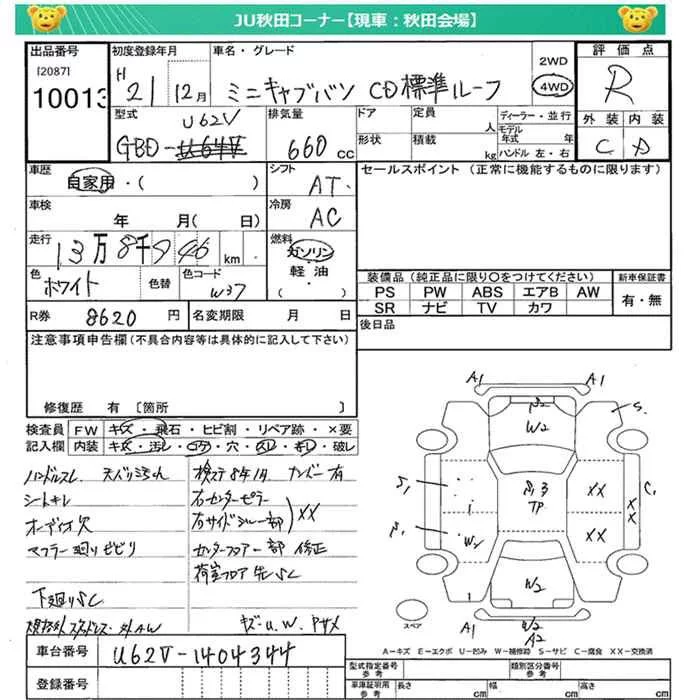 JU秋田コーナー【現車:秋田会場】
出品番号
[2087]
10013
初度登録年月
H 21 12月
車名・グレード
ミニキャブバン CD標準ルーフ
2WD
4WD
評価点
R
外装 内装
C D
型式
U62V
GBD-U64V
排気量
660 cc
ドア
形状
定員
人
積載
kg
ディーラー・並行
モデル年式 年
ハンドル 左・右
車歴
自家用・( )
シフト
AT
セールスポイント (正常に機能するものに限ります)
車検
年 月( 日)
冷房
AC
走行
13万8千946 km
燃料
ガソリン
軽油
( )
色
ホワイト
色替
色コード
W37
装備品(純正品に限り○をつけてください)
新車保証書
PS PW ABS エアB AW
有・無
SR ナビ TV カワ
R券 8620 円
名変期限 月 日
後日品
注意事項申告欄(不具合内容等は具体的に記入して下さい)
修復歴 有 〔箇所 〕
検査員 FW キズ・飛石・ヒビ割・リペア跡・×要
記入欄 内装 キズ・汚レ・コゲ・穴・スレ・キレ・破レ
ハンドルスレ 天バリミちゃれ
シートキレ
オーディオ欠
マフラー廻りビビリ
下廻りSC
検ステ8年1月 ナンバー有
右センターピラー
右サイドシルー部 XX
センターフロアー部 修正
荷室フロア 先SC
スタッドレス・外AW
キズ・U.W. Pサメ
A1 A1
P2
W2
S.
S1
P,3
TP
XX
C1
P1
W2
XX
XX
W2
A1
W2
A2
スペア
A-キズ E-エクボ U-凹み W-補修跡 S-サビ C-腐食 XX-交換済
車台番号 U62V-1404344
登録番号
型式指定番号
参考
類別区分番号
参考
車庫証明用
参考
長さ cm
幅 cm
高さ cm